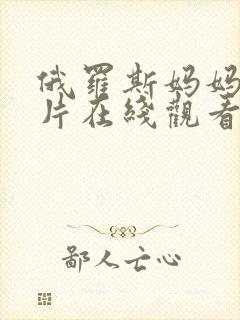 俄羅斯妈妈
片在綫觀看
鄙人亡心